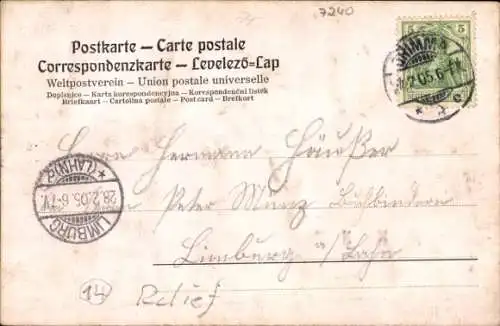 7240
5 5
GRIMMA
2.05.6-7
* c
Postkarte — Carte postale
Correspondenzkarte — Levelező=Lap
Weltpostverein — Union postale universelle
Dopisnice – Karta korespondencyjna – Korespondenční lístek
Briefkaart – Cartolina postale – Post card – Brefkort
Herrn Hermann Häußer
* (LAHN)
28.2.05.6-7V.
LIMBURG
Peter Munz Buchbinderei
Limburg a/Lahn
14
Relief